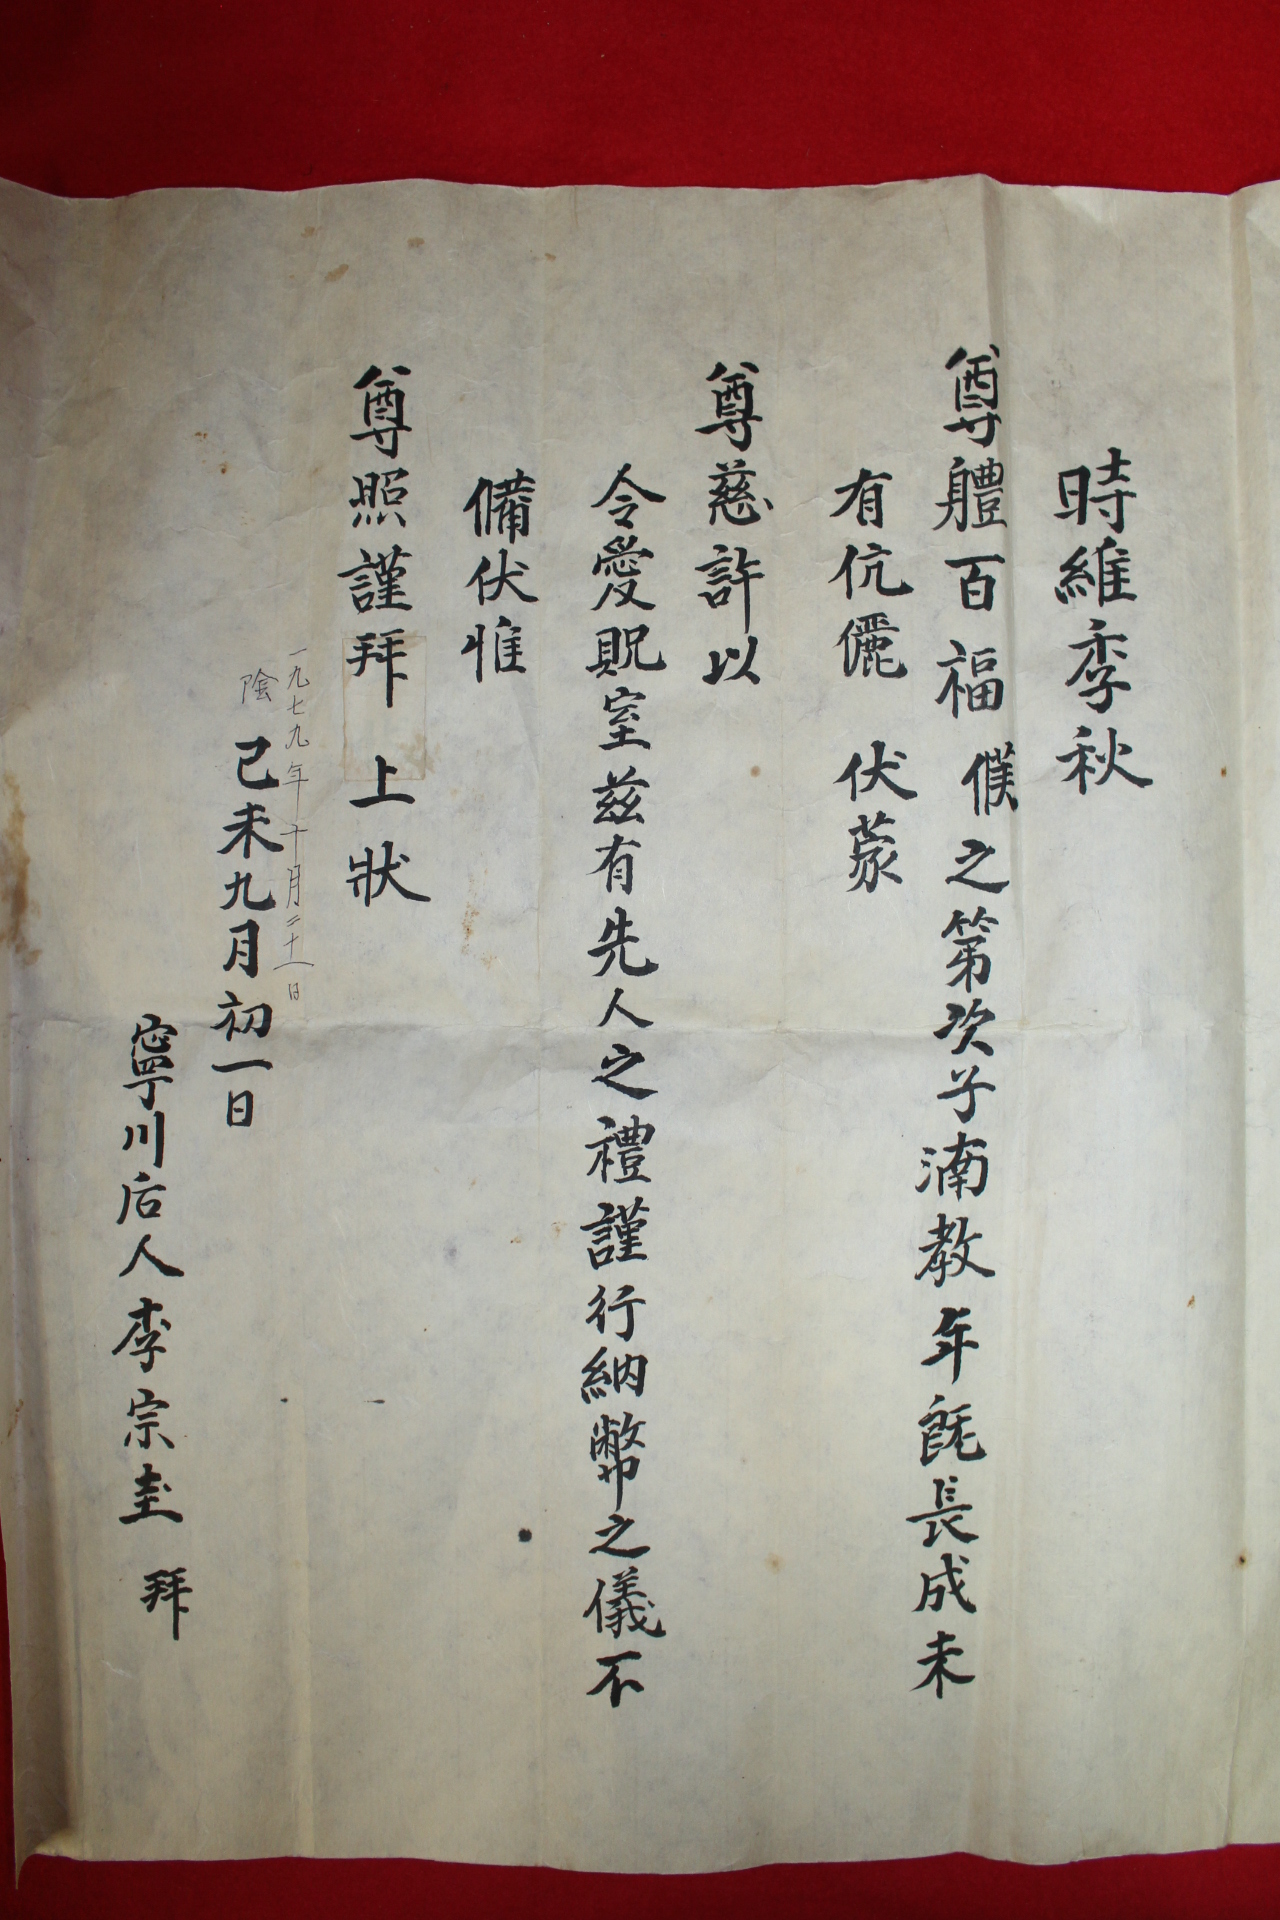 時維季秋
尊軆百福 僕之第次子湳敎年旣長成未
有伉儷 伏蒙
尊慈許以
令愛貺室玆有先人之禮謹行納幣之儀不
備伏惟
尊照謹拜 上狀
一九七九年十月二十一日
陰
己未九月初一日
寧川后人李宗圭 拜